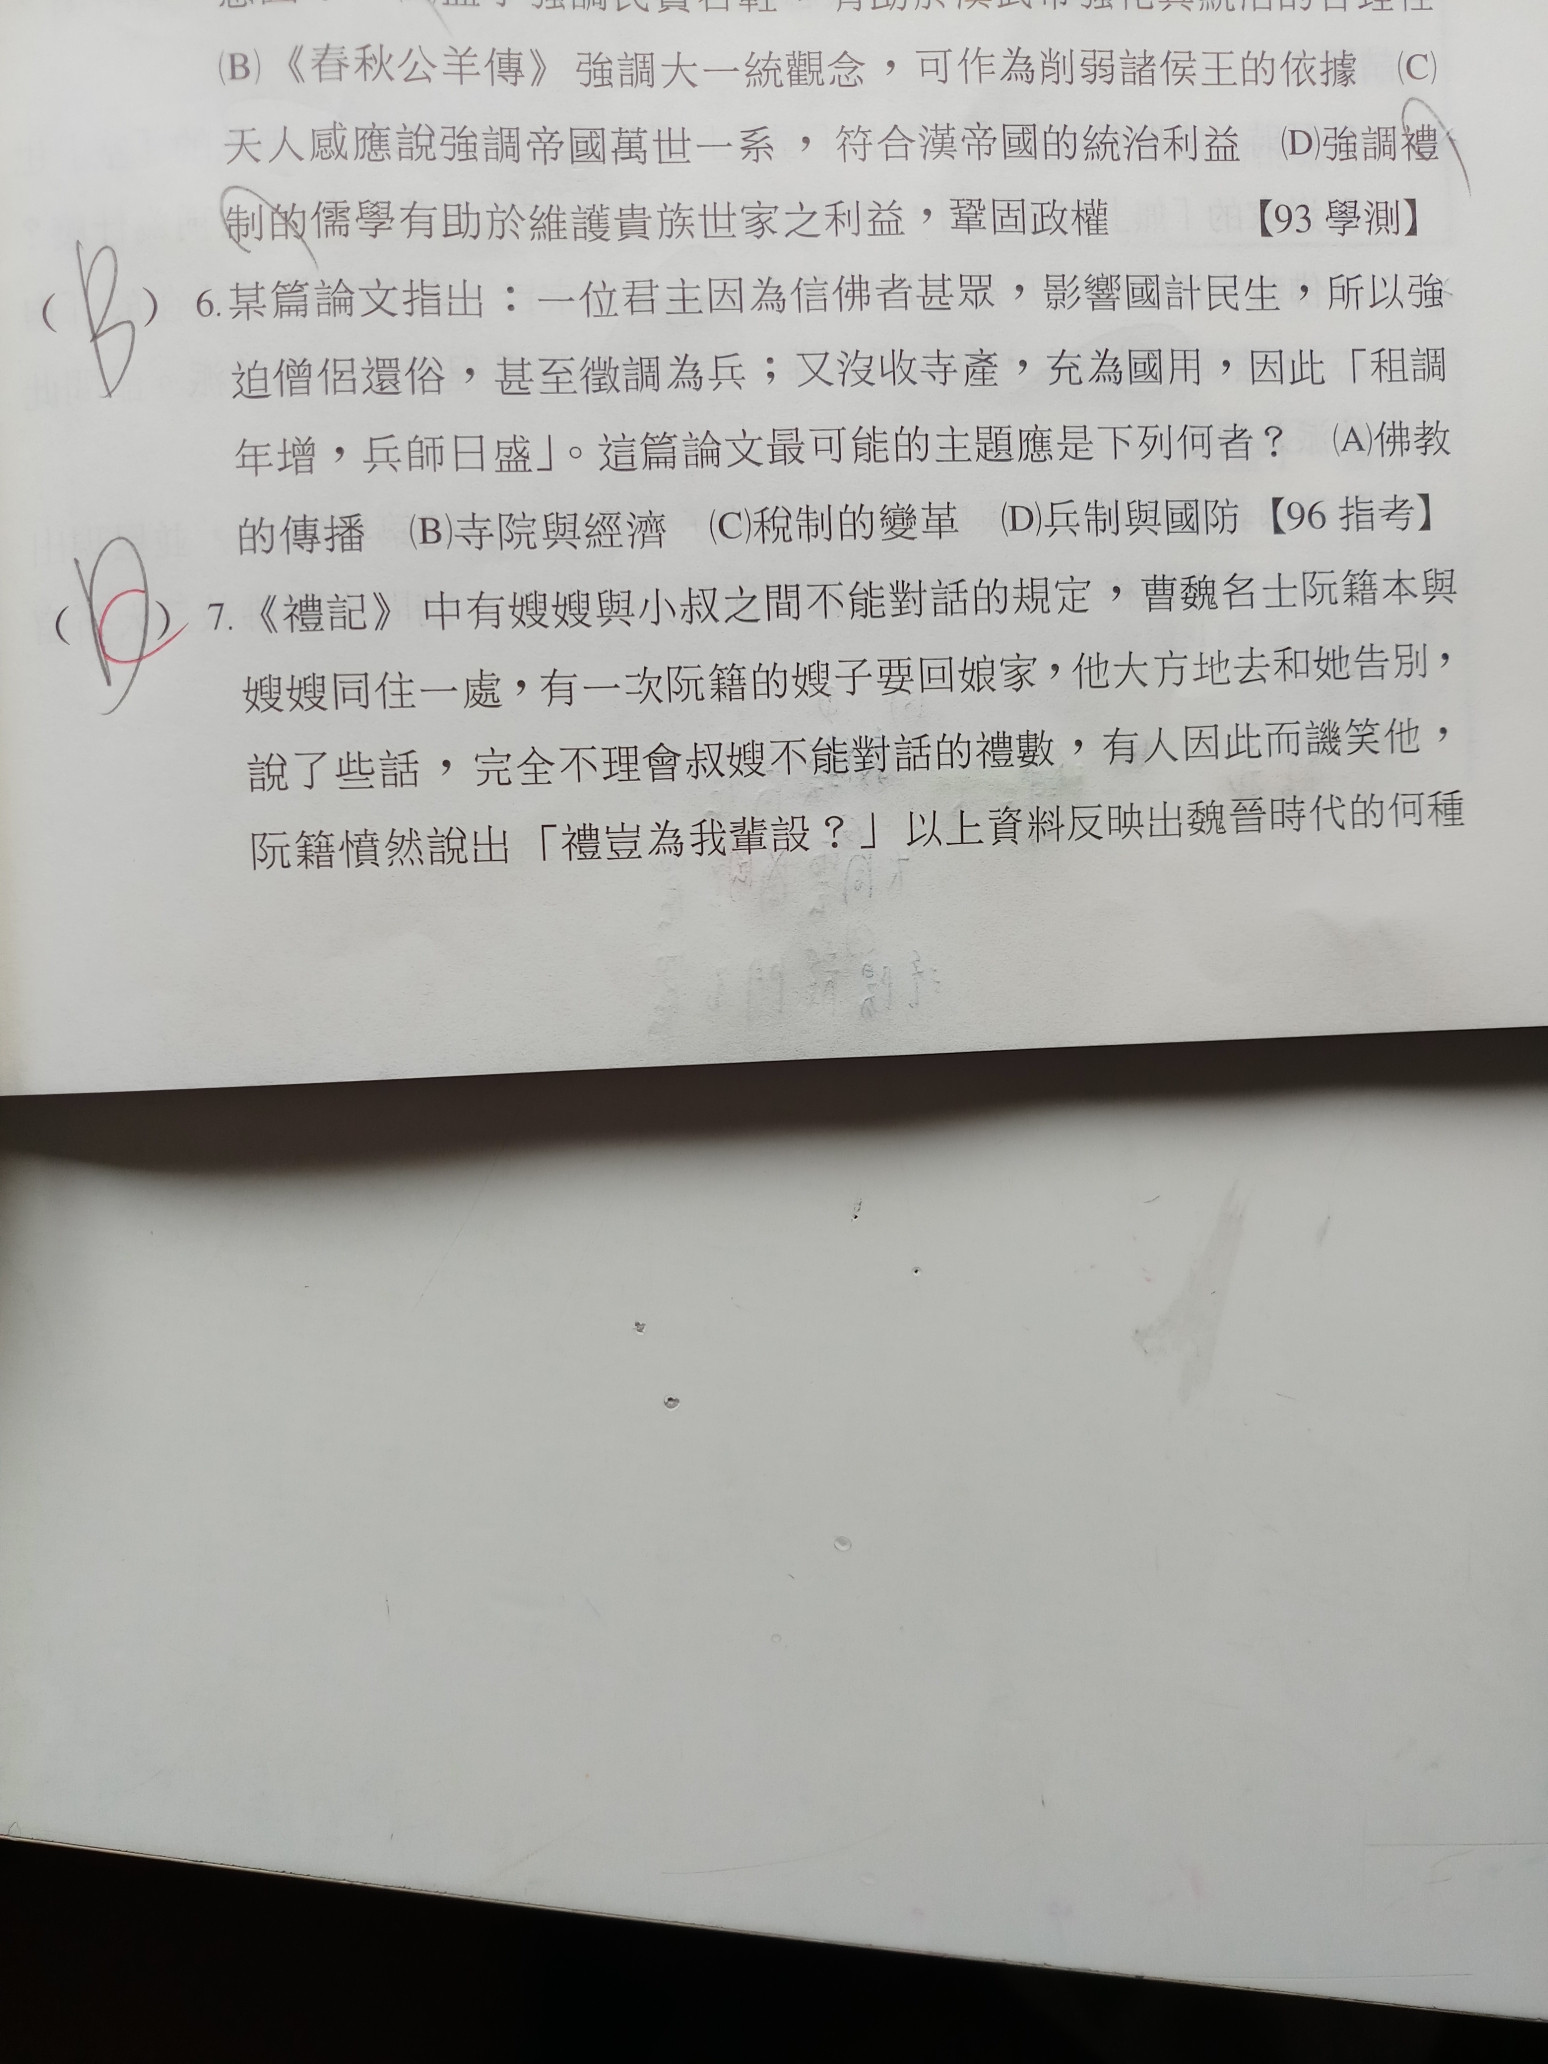 (B)《春秋公羊傳》強調大一統觀念，可作為削弱諸侯王的依據 (C)
天人感應說強調帝國萬世一系，符合漢帝國的統治利益 (D)強調禮
制的儒學有助於維護貴族世家之利益，鞏固政權 【93 學測】
(B) 6.某篇論文指出：一位君主因為信佛者甚眾，影響國計民生，所以強
迫僧侶還俗，甚至徵調為兵；又沒收寺產，充為國用，因此「租調
年增，兵師日盛」。這篇論文最可能的主題應是下列何者？ (A)佛教
的傳播 (B)寺院與經濟 (C)稅制的變革 (D)兵制與國防【96 指考】
(D) 7.《禮記》中有嫂嫂與小叔之間不能對話的規定，曹魏名士阮籍本與
嫂嫂同住一處，有一次阮籍的嫂子要回娘家，他大方地去和她告別，
說了些話，完全不理會叔嫂不能對話的禮數，有人因此而譏笑他，
阮籍憤然說出「禮豈為我輩設？」以上資料反映出魏晉時代的何種